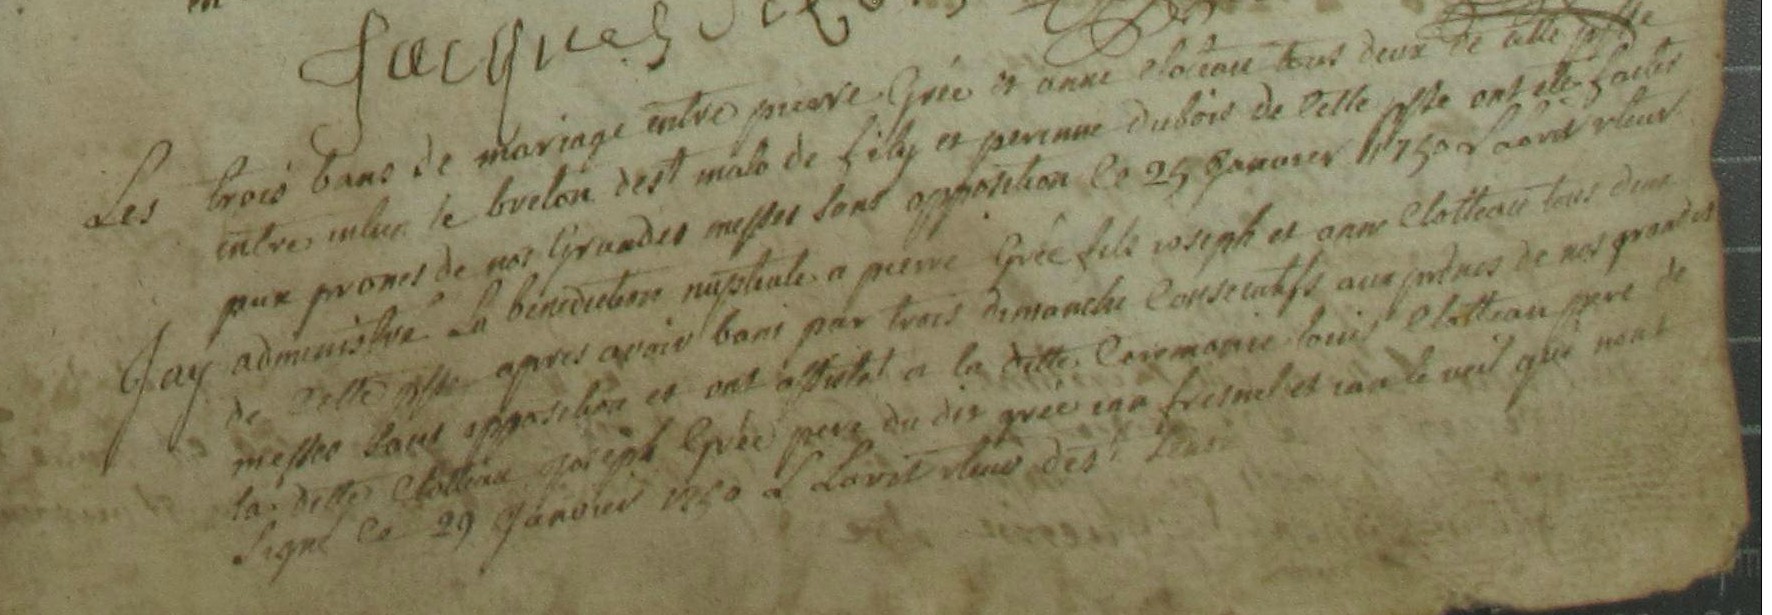 Jacques
Les trois bans de mariage entre pierre Grée et anne cloteau tous deux de cette psse
entre le breton de st malo de fily et perinne dubois de Cette psse ont ete faites
aux prones de nos Grandes messes sans opposition Ce 25 Janvier 1750
Jay administre La benediction nuptiale a pierre Grée fils ioseph et anne Clotteau tous deux
de Cette psse apres avoir bani par trois dimanche Consecutifs aux prones de nos grandes
messes sans opposition et ont assistes a la ditte Ceremonie louis Clotteau pere de
la ditte Clotteau Joseph Grée pere du dit grée ian fresnel et ian le meil qui nont
Signé Ce 29 Janvier 1750